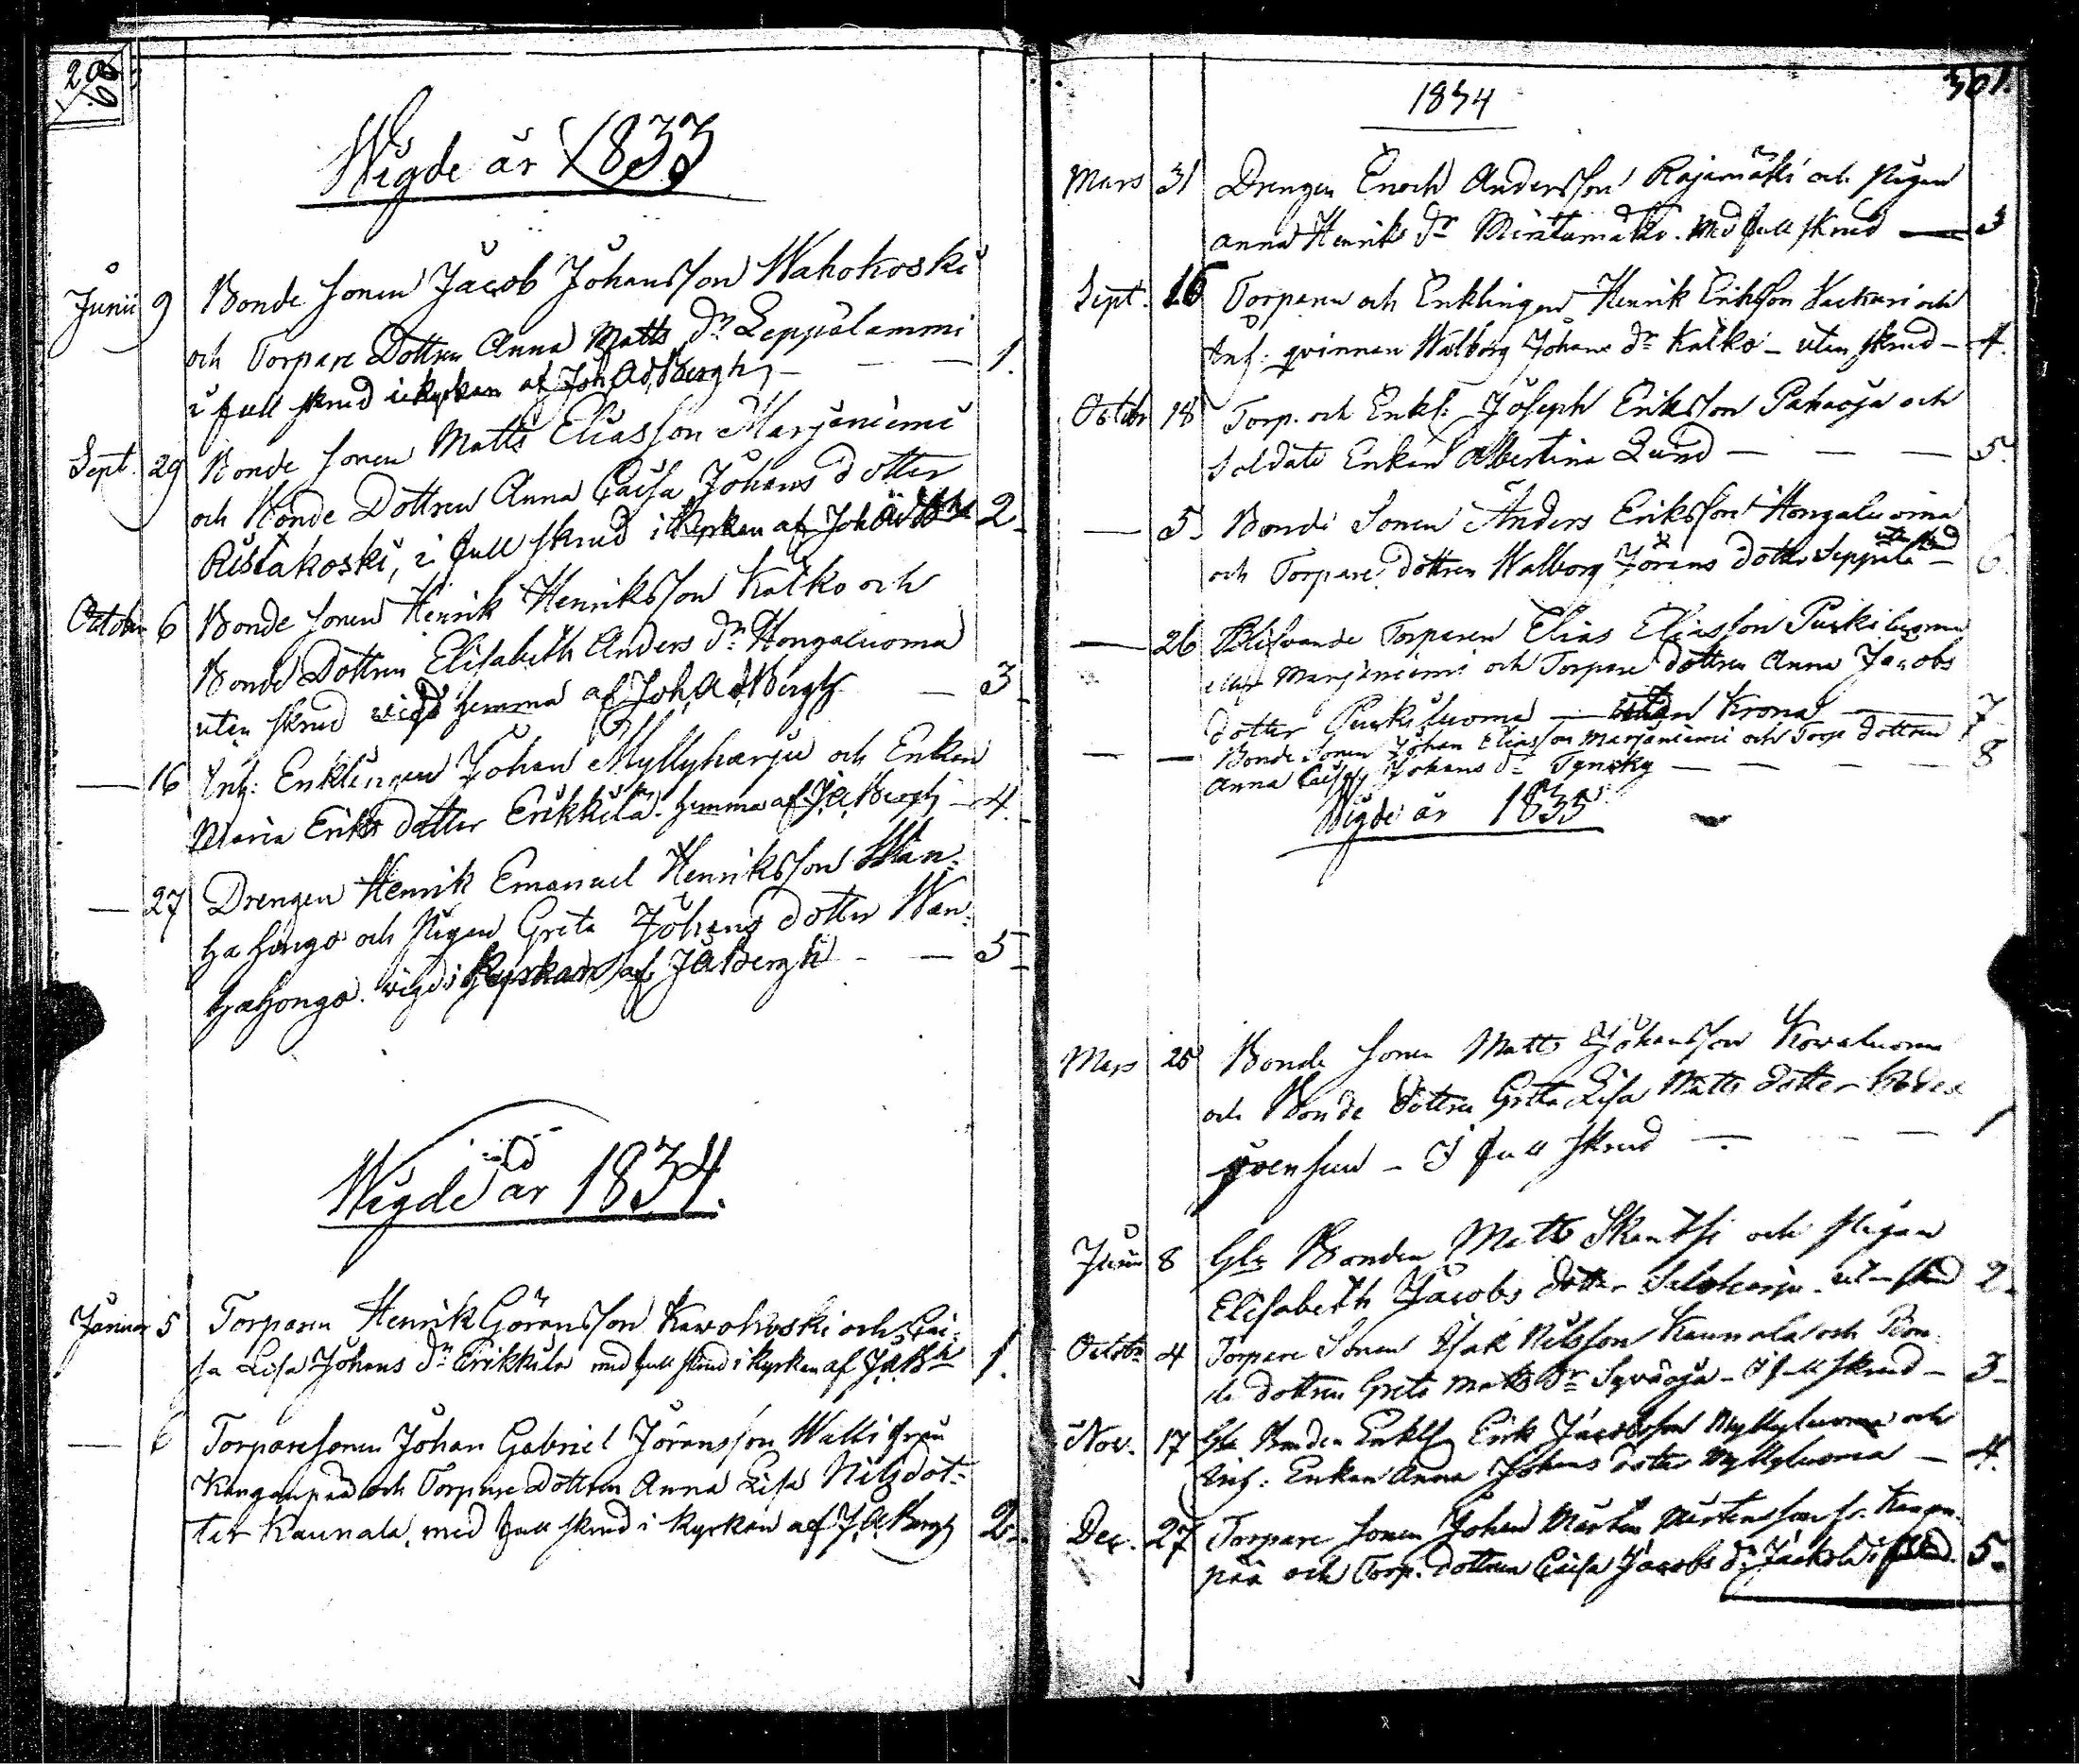 Wigde år 1833
Junii 9 Bonde Sonen Jacob Johansson Wahokoski
och Torpare Dottren Anna Matts Dr Leppälammi
i full skrud i kyrkan af Joh Ad Bergh — — 1.
Sept. 29 Bonde Sonen Matts Eliasson Marjeniemi
och Bonde Dottren Anna Caisa Johans dotter
Ristakoski, i full skrud i Kyrkan af Joh 2
October 6 Bonde Sonen Henrik Henriksson Kalko och
Bonde Dottren Elisabeth Anders Dr Hongaluoma
uten skrud vigd hemma af Joh Ad Bergh — 3
— 16 Inh: Enklingen Johan Myllyharju och Enkan
Maria Eriks dotter Erikkilä. hemma af J. A. Bergh — 4.
— 27 Drengen Henrik Emanuel Henriksson Wan:
hahongo och Pigan Greta Johans dotter Wan:
hahongo. vigd i Kyrkan af J A Bergh — 5
Wigde år 1834.
Januar 5 Torparen Henrik Göransson Karvokoski och Cai:
sa Lisa Johans Dr Erikkilä med full skrud i kyrkan af J. A. Bh 1.
— 6 Torparesonen Johan Gabriel Jöransson
Kanganpää och Torpare Dottren Anna Lisa Nilsdot:
ter Kaunala, med full skrud i kyrkan af J. A. Bergh 2.
301.
1834
Mars 31 Drengen Enoch Andersson Rajamäki och Pigan
Anna Henriks Dr Mintumäki. Med full skrud — 3
Sept. 16 Torparen och Enklingen Henrik Eriksson och
Inh: qvinnan Walborg Johans Dr Kalko — uten skrud — 4.
October 18 Torp. och Enkl: Joseph Eriksson Pahaoja och
Soldats Enkan Albertina Lund — — — 5.
— 5. Bonde Sonen Anders Eriksson Hongaluoma
och Torpare dottren Walborg Jörans dotter Seppälä — 6.
— 26 Blifvande Torparen Elias Eliasson Purkiluoma
eller Marjaniemi och Torpare dottren Anna Jacobs
dotter Purkiluoma — utan Krona — 7
— — Bonde Sonen Johan Eliasson Marjaniemi och Torp dottren
Anna Caisa Johans Dr — — — 8
Wigde år 1835
Mars 25 Bonde Sonen Matts Johansson Kowaluoma
och Bonde Dottren Greta Lisa Matts dotter
— I full skrud — — — 1
Junii 8 Gla Bonden Matts Skantsi och Pigan
Elisabeth Jacobs dotter Saloharju. uten skrud 2.
Octobr 4 Torpare Sonen Isak Nilsson Kaunala och Bon:
de dottren Greta Matts Dr Syväoja — I full skrud — 3
Nov. 17 Gla Bonden Enkl Erik Jacobsson Myllyluoma och
Inh: Enkan Anna Johans dotter Myllyluoma — 4.
Dec. 27 Torpare Sonen Johan Mårten Mårtensson Kangan
pää och Torp. dottren Caisa Jacobs Dr i skrud. 5.